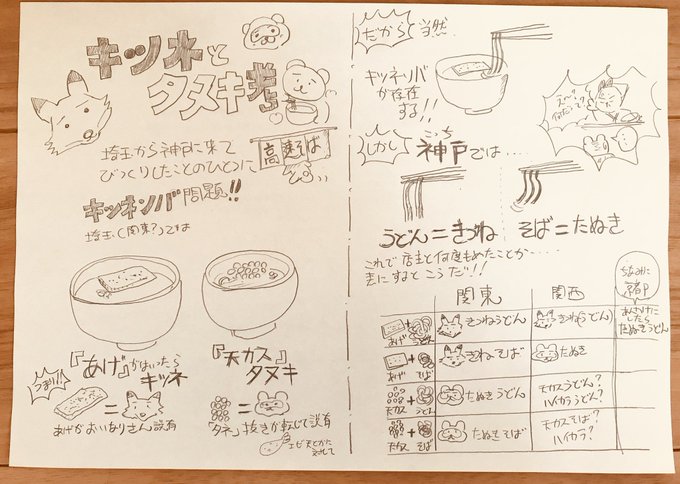 キツネと
タヌキ考
埼玉から神戸に来て
びっくりしたことのひとつに
高速そば
キツネソバ問題!!
埼玉(関東?)では
『あげ』がはいったら
キツネ
つまり!!
あげがおいなりさん説有
『天カス』
タヌキ
「タネ」抜きが転じて説有
だから 当然
キツネソバ
が存在
する!!
しかし
こっち
神戸では‥‥
うどん=きつね
そば=たぬき
これで店主と何度もめたことか‥‥
表にするとこうだ!!
関東
関西
ちなみに
京都
あげ
うどん
きつねうどん
きつね(うどん)
あんかけに
したら
たぬきうどん
あげ
そば
きつねそば
たぬき
天カス
うどん
たぬきうどん
天カスうどん?
ハイカラうどん?
天カス
そば
たぬきそば
天カスそば?
ハイカラ?